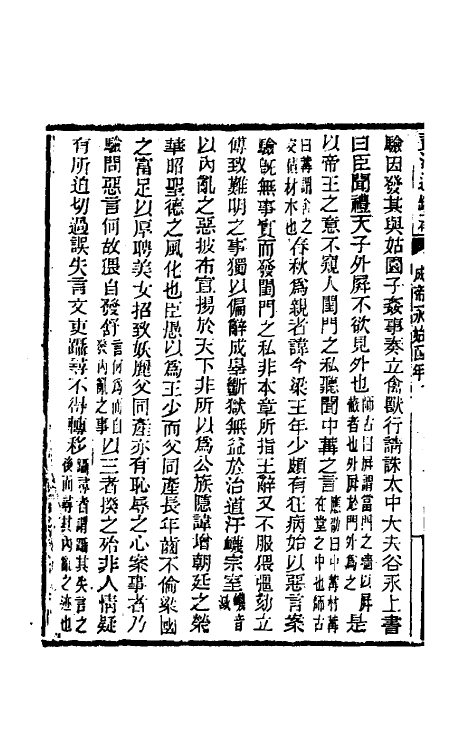 成帝永始四年
驗因發其與姑園子姦事奏立禽獸行請誅太中大夫谷永上書
曰臣聞禮天子外屏不欲見外也師古曰屏謂當門之牆以屏蔽者也外屏於門外爲之是
以帝王之意不窺人閨門之私聽聞中冓之言應劭曰中冓材冓在堂之中也師古
曰冓謂舍之交積材木也春秋爲親者諱今梁王年少頗有狂病始以惡言案
驗旣無事實而發閨門之私非本章所指王辭又不服猥彊劾立
傅致難明之事獨以偏辭成辠斷獄無益於治道汙衊宗室衊音滅
以內亂之惡披布宣揚於天下非所以爲公族隱諱增朝廷之榮
華昭聖德之風化也臣愚以爲王少而父同產長年齒不倫梁國
之富足以厚聘美女招致妖麗父同產亦有恥辱之心案事者乃
驗問惡言何故猥自發舒言何爲而自發內亂之事以三者揆之殆非人情疑
有所迫切過誤失言文吏躡尋不得轉移躡尋者謂躡其失言之後而尋其內亂之迹也